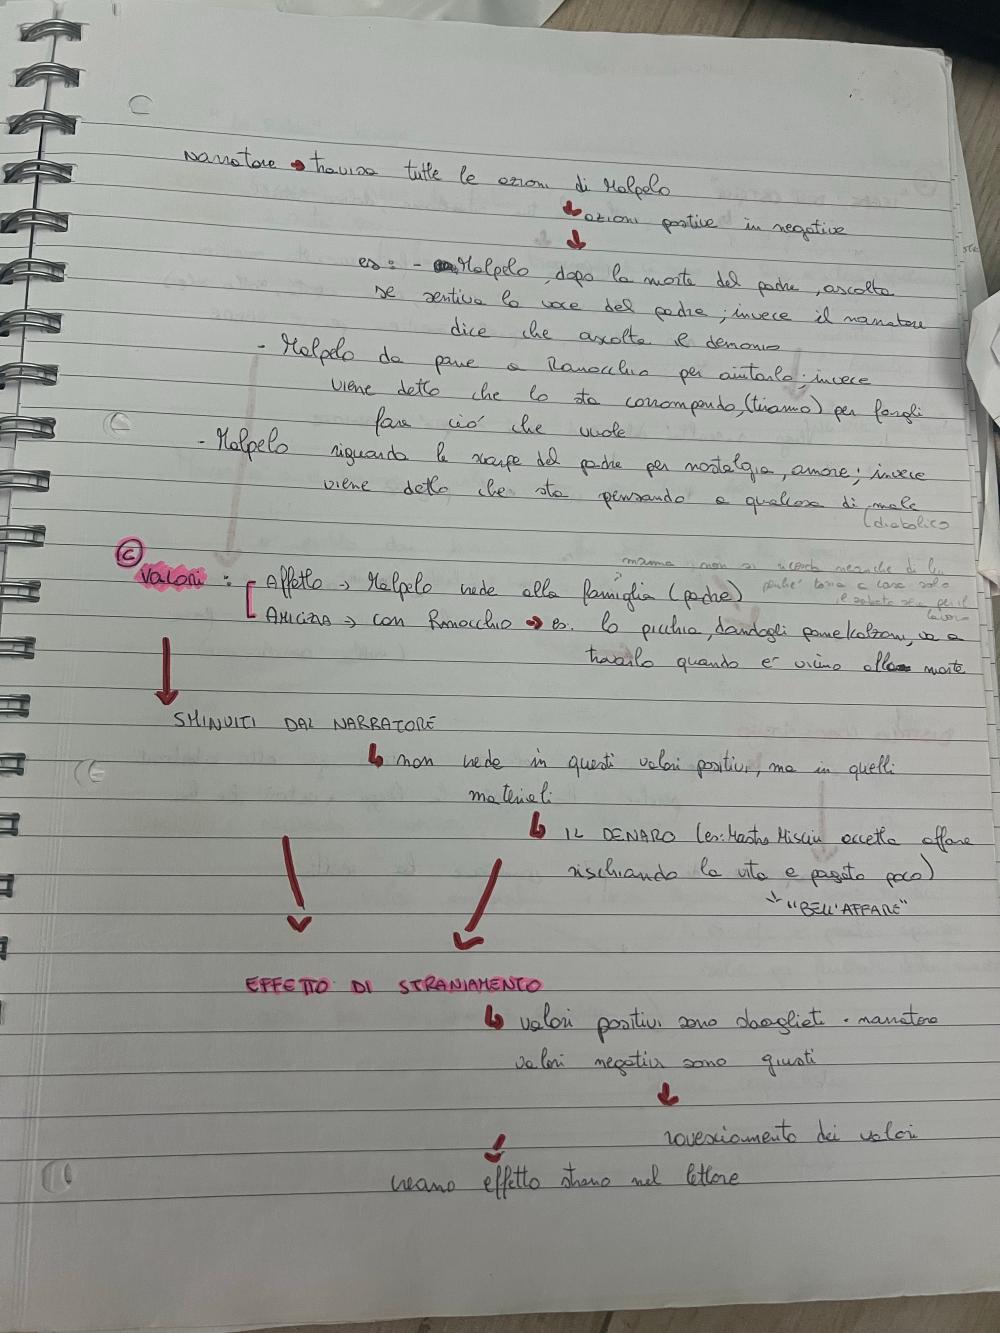 narratore → travisa tutte le azioni di Malpelo
↳ azioni positive in negative
↓
es: - Malpelo, dopo la morte del padre, ascolta
se sentiva la voce del padre; invece il narratore
dice che ascolta il demonio
- Malpelo da pane a Ranocchio per aiutarlo; invece
viene detto che lo sta corrompendo, (tiranno) per fargli
fare ciò che vuole
- Malpelo riguarda le scarpe del padre per nostalgia, amore; invece
viene detto che sta pensando a qualcosa di male
(diabolico
mamma: non si ricorda neanche di lui
perché torna a casa solo
il sabato sera per il
lavoro
© valori: Affetto → Malpelo vede alla famiglia (padre)
Amicizia → con Ranocchio → es. lo picchia, dandogli pane/calzoni, va a
trovarlo quando è vicino alla morte
↓
SMINUITI DAL NARRATORE
↳ non vede in questi valori positivi, ma in quelli
materiali
↳ IL DENARO (es: Mastro Misciu accetta affare
rischiando la vita e pagato poco)
↓ "BELL'AFFARE"
EFFETTO DI STRANIAMENTO
↳ valori positivi sono sbagliati · narratore
valori negativi sono giusti
↓
rovesciamento dei valori
↓
creano effetto strano nel lettore